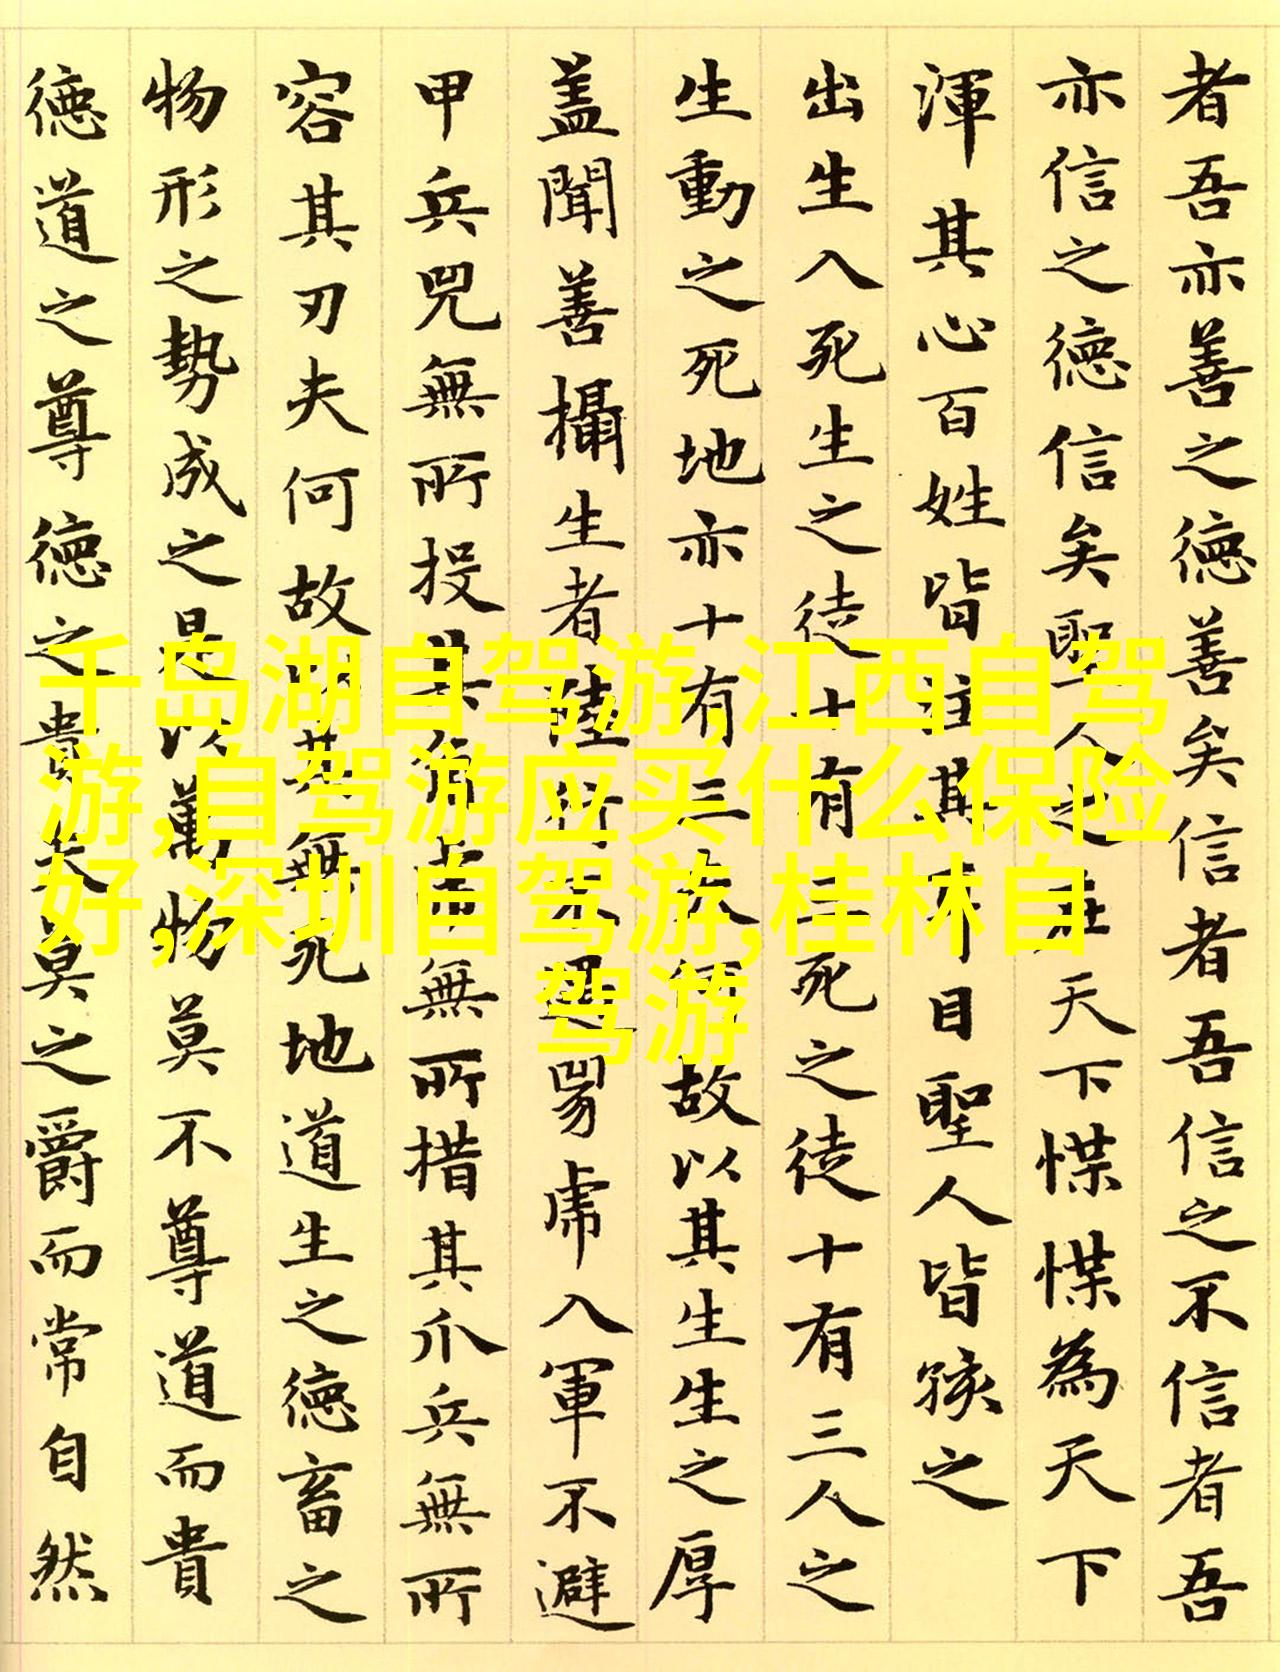 者吾亦善之德善矣信者吾信之不信者吾
亦信之德信矣聖人之在天下惵惵為天下
渾其心百姓皆注其耳目聖人皆孩之
出生入死生之徒十有三死之徒十有三人之
生動之死地亦十有三夫何故以其生生之厚
蓋聞善攝生者陸行不遇兕虎入軍不避
甲兵兕無所投其角虎無所措其爪兵無所
容其刃夫何故以其無死地道生之德畜之
物形之勢成之是以萬物莫不尊道而貴
德道之尊德之貴夫莫之爵而常自然
千岛湖自驾游,江西自驾
游,自驾游应买什么保险
好,深圳自驾游,桂林自
驾游